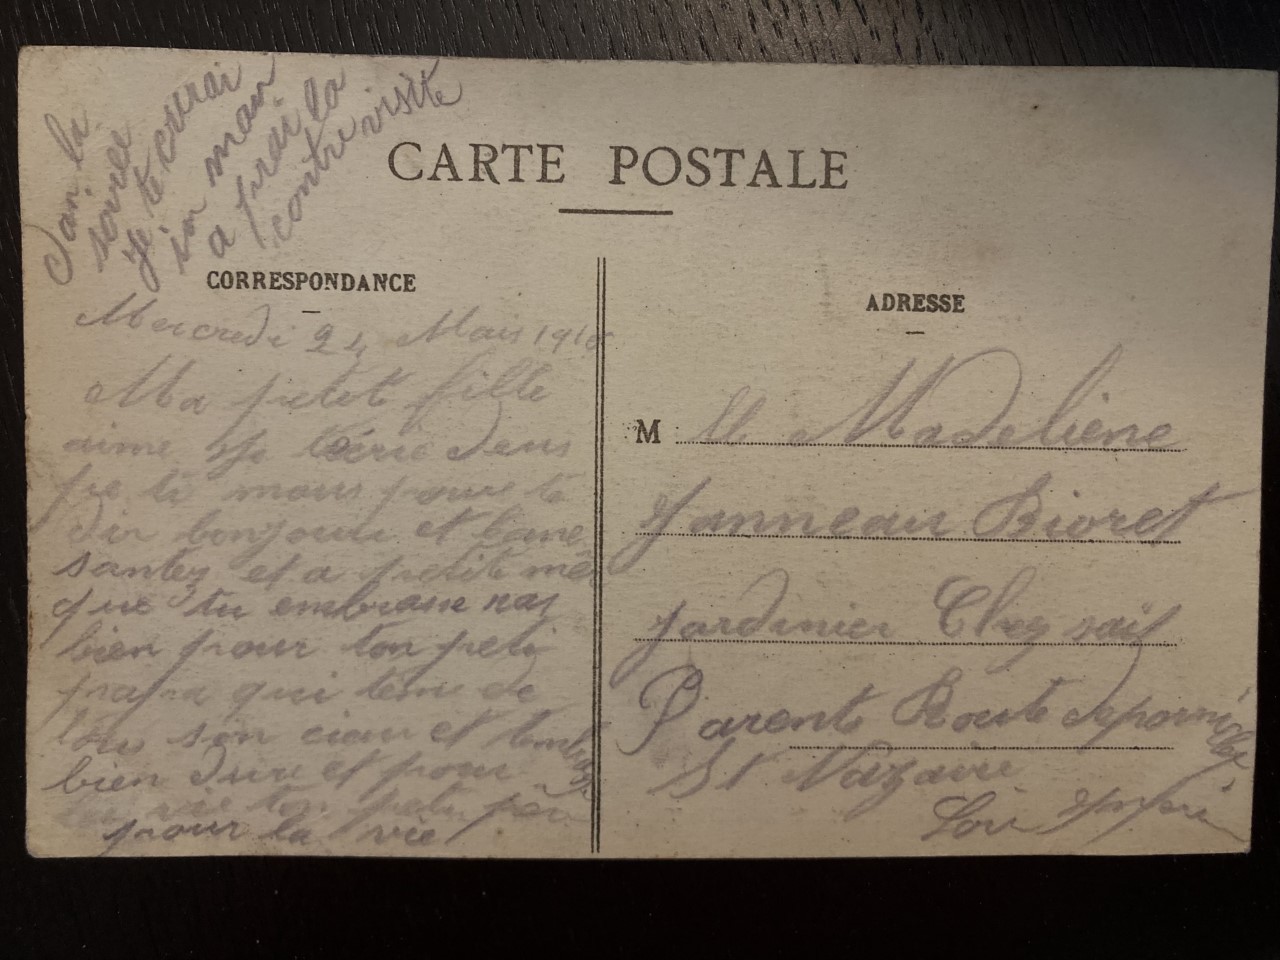 Dan la
soiree
je te ecrirai
in man
a firai la
contre visite
CARTE POSTALE
CORRESPONDANCE
Mercredi 24 Mars 1915
Ma petit fille
aime je técrie deus
pe ti mous pour te
dir bonjour et bone
santez et a petite mé
que tu embrasse nas
bien pour ton peti
papa qui teme de
tou son cieur et tembras
bien dure et pour
la vie ton peti pèr
pour la vie
ADRESSE
M lle Madeliène
Janneau Bioret
jardinier Chez
Parent Route de pornichet
St Nazaire
Loir